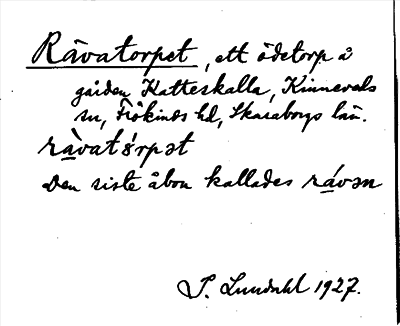 Rävatorpet, ett ödetorp å
gården Katteskalla, Kinneveds
sn, Frökinds hd, Skaraborgs län.
rävatɷrpət
Den siste åbon kallades rävən
S. Lundahl 1927.